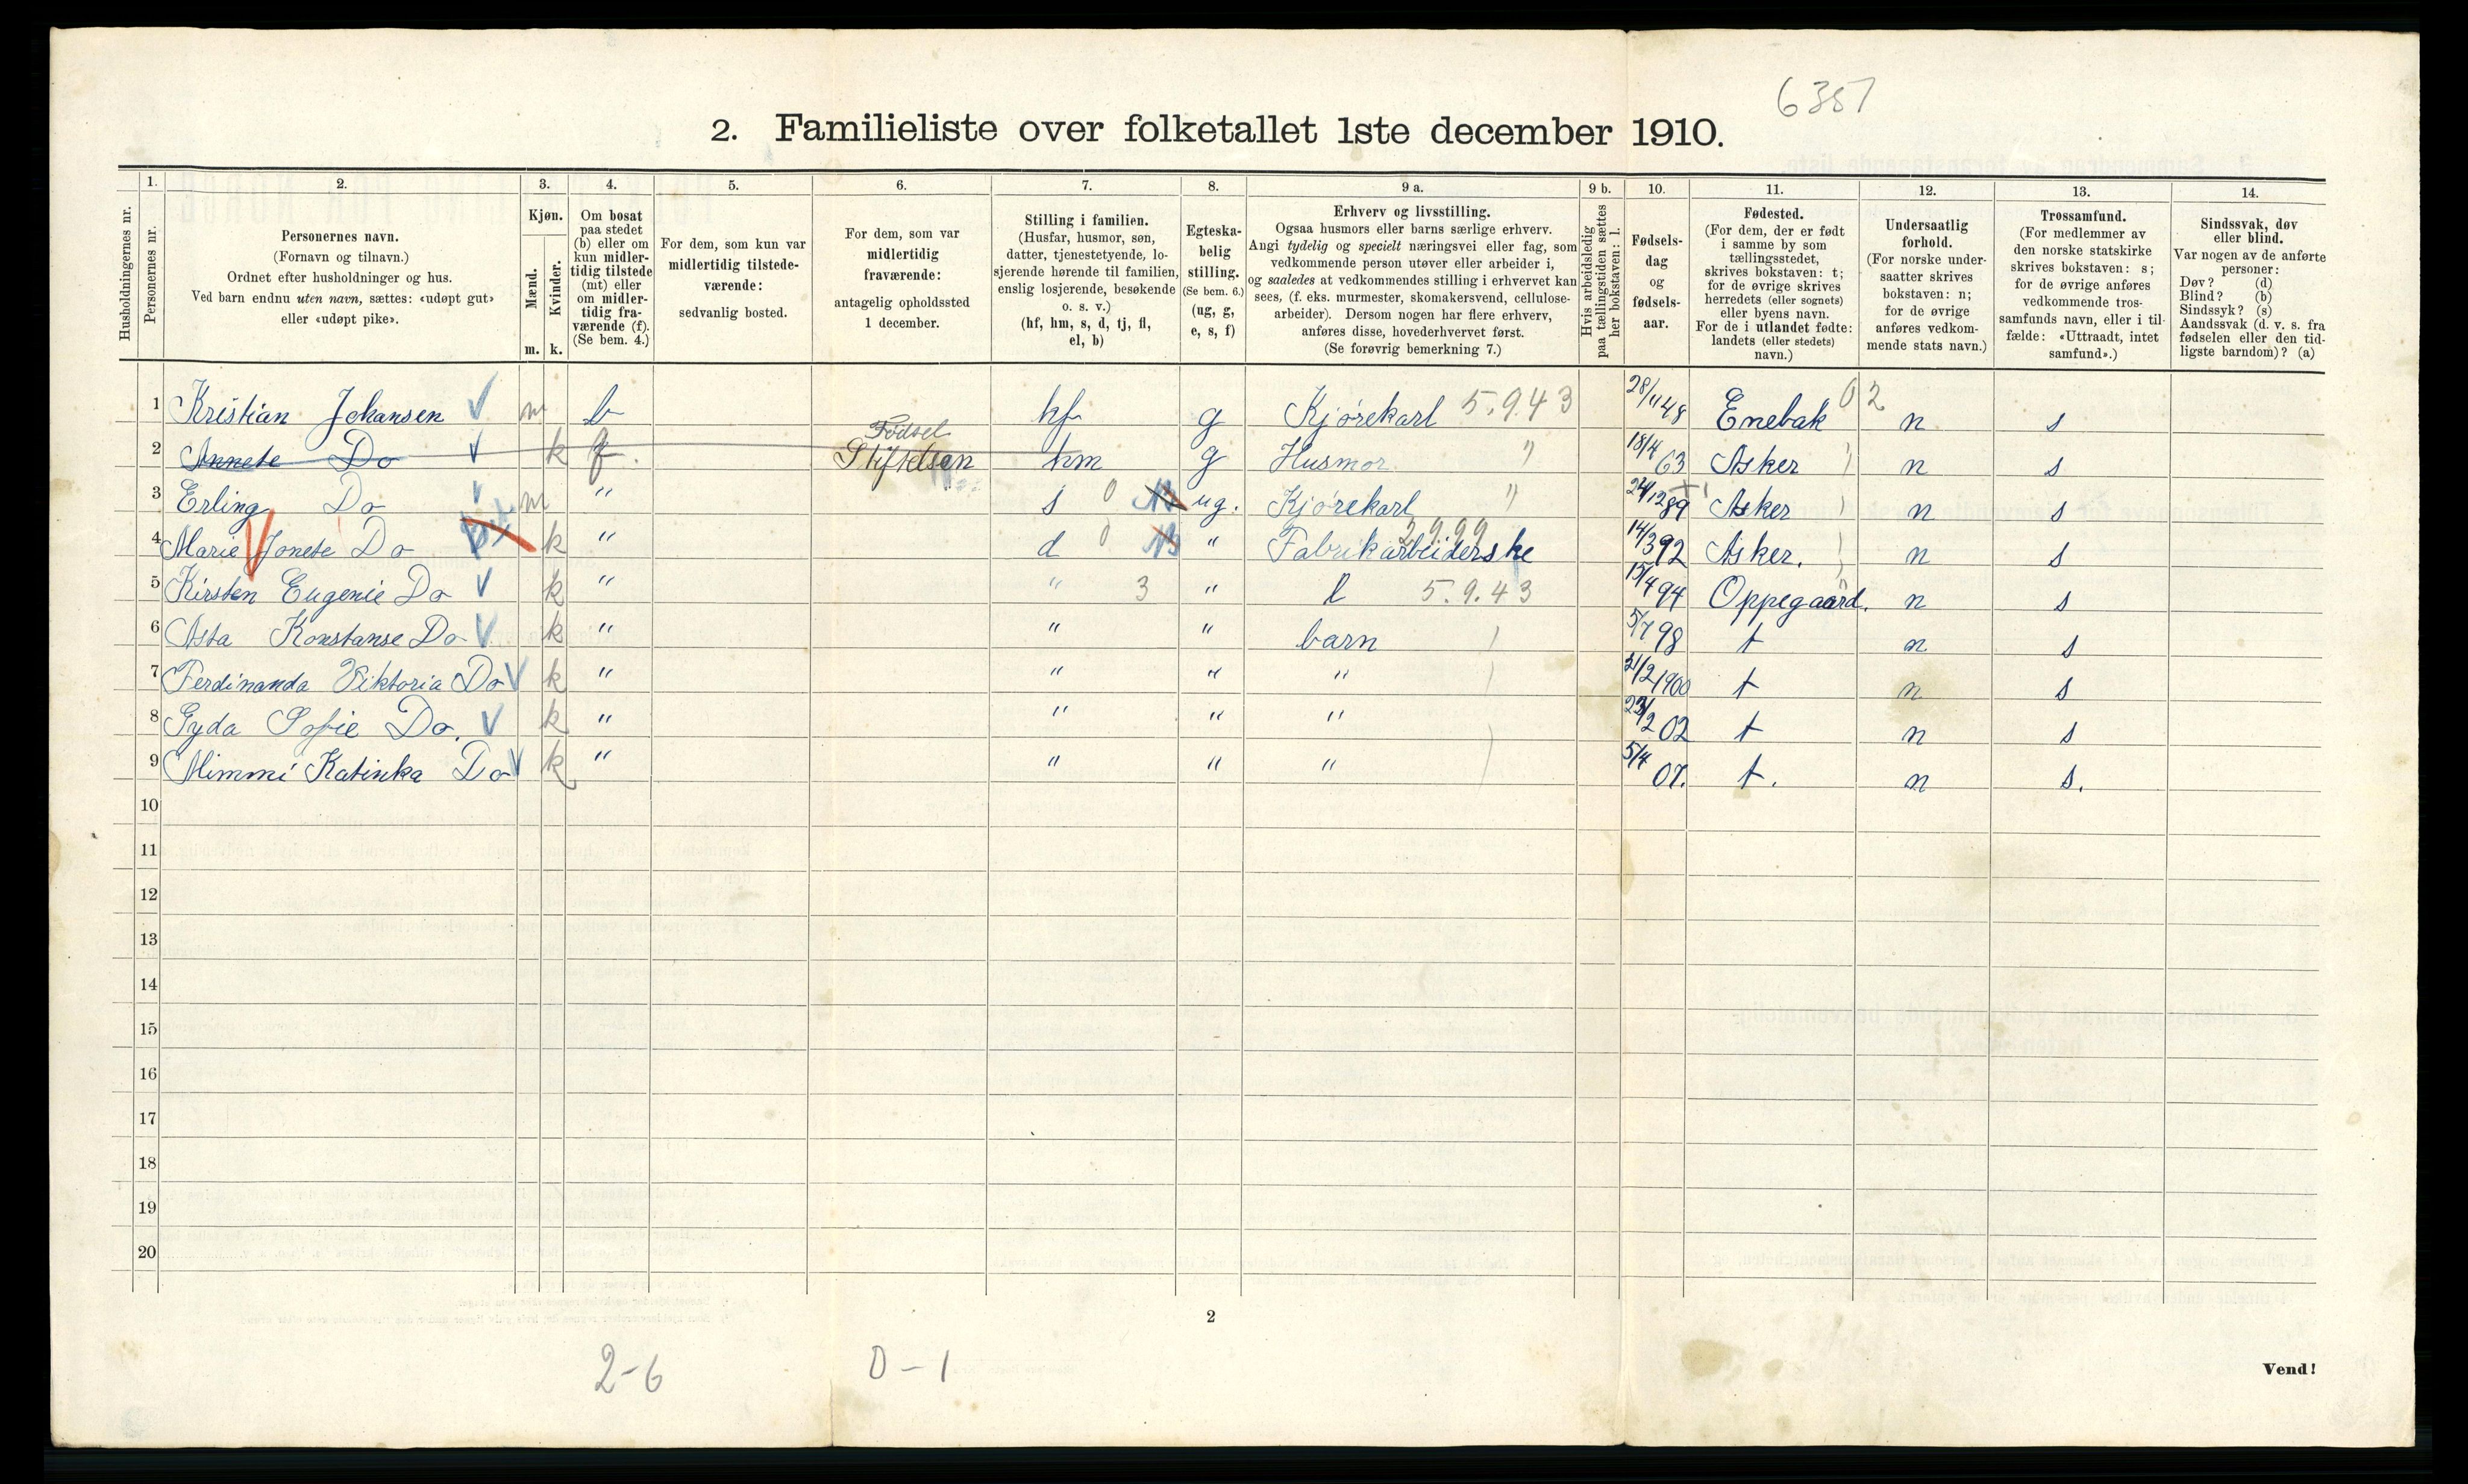 6357
2. Familieliste over folketallet 1ste december 1910.
Husholdningernes nr.
1.
Personernes nr.
2.
Personernes navn.
(Fornavn og tilnavn.)
Ordnet efter husholdninger og hus.
Ved barn endnu uten navn, sættes: «udøpt gut»
eller «udøpt pike».
3.
Kjøn.
Mænd.
Kvinder.
m. k.
4.
Om bosat
paa stedet
(b) eller om
kun midler-
tidig tilstede
(mt) eller
om midler-
tidig fra-
værende (f).
(Se bem. 4.)
5.
For dem, som kun var
midlertidig tilstede-
værende:
sedvanlig bosted.
6.
For dem, som var
midlertidig
fraværende:
antagelig opholdssted
1 december.
7.
Stilling i familien.
(Husfar, husmor, søn,
datter, tjenestetyende, lo-
sjerende hørende til familien,
enslig losjerende, besøkende
o. s. v.)
(hf, hm, s, d, tj, fl,
el, b)
8.
Egteska-
belig
stilling.
(Se bem. 6.)
(ug, g,
e, s, f)
9 a.
Erhverv og livsstilling.
Ogsaa husmors eller barns særlige erhverv.
Angi tydelig og specielt næringsvei eller fag, som
vedkommende person utøver eller arbeider i,
og saaledes at vedkommendes stilling i erhvervet kan
sees, (f. eks. murmester, skomakersvend, cellulose-
arbeider). Dersom nogen har flere erhverv,
anføres disse, hovederhvervet først.
(Se forøvrig bemerkning 7.)
9 b.
Hvis arbeidsledig
paa tællingstiden sættes
her bokstaven: l.
10.
Fødsels-
dag
og
fødsels-
aar.
11.
Fødested.
(For dem, der er født
i samme by som
tællingsstedet,
skrives bokstaven: t;
for de øvrige skrives
herredets (eller sognets)
eller byens navn.
For de i utlandet fødte:
landets (eller stedets)
navn.)
12.
Undersaatlig
forhold.
(For norske under-
saatter skrives
bokstaven: n;
for de øvrige
anføres vedkom-
mende stats navn.)
13.
Trossamfund.
(For medlemmer av
den norske statskirke
skrives bokstaven: s;
for de øvrige anføres
vedkommende tros-
samfunds navn, eller i til-
fælde: «Uttraadt, intet
samfund».)
14.
Sindssvak, døv
eller blind.
Var nogen av de anførte
personer:
Døv? (d)
Blind? (b)
Sindssyk? (s)
Aandssvak (d. v. s. fra
fødselen eller den tid-
ligste barndom)? (a)
1 Kristian Johansen m b hf g Kjørekarl 5.9.43 28/11 48 Enebak 02 n s
2 Annete Do k f. Fødsel Stiftelsen hm g Husmor " 18/4 63 Asker n s
3 Erling Do m " s 0 ug. Kjørekarl " 24/12 89 Asker n s
4 Marie Jonete Do k " d 0 " Fabrikarbeiderske 2.9.99 14/3 92 Asker. n s
5 Kirsten Eugenie Do k " " 3 " l 5.9.43 15/4 94 Oppegaard. n s
6 Asta Konstanse Do k " " " barn 5/7 98 t n s
7 Ferdinanda Viktoria Do k " " " " 21/2 1900 t n s
8 Gyda Sofie Do. k " " " " 23/2 02 t n s
9 Mimmi Katinka Do k " " " " 5/4 07. t. n s.
10
11
12
13
14
15
16
17
18
19
20
2
2-6 0-1
Vend!